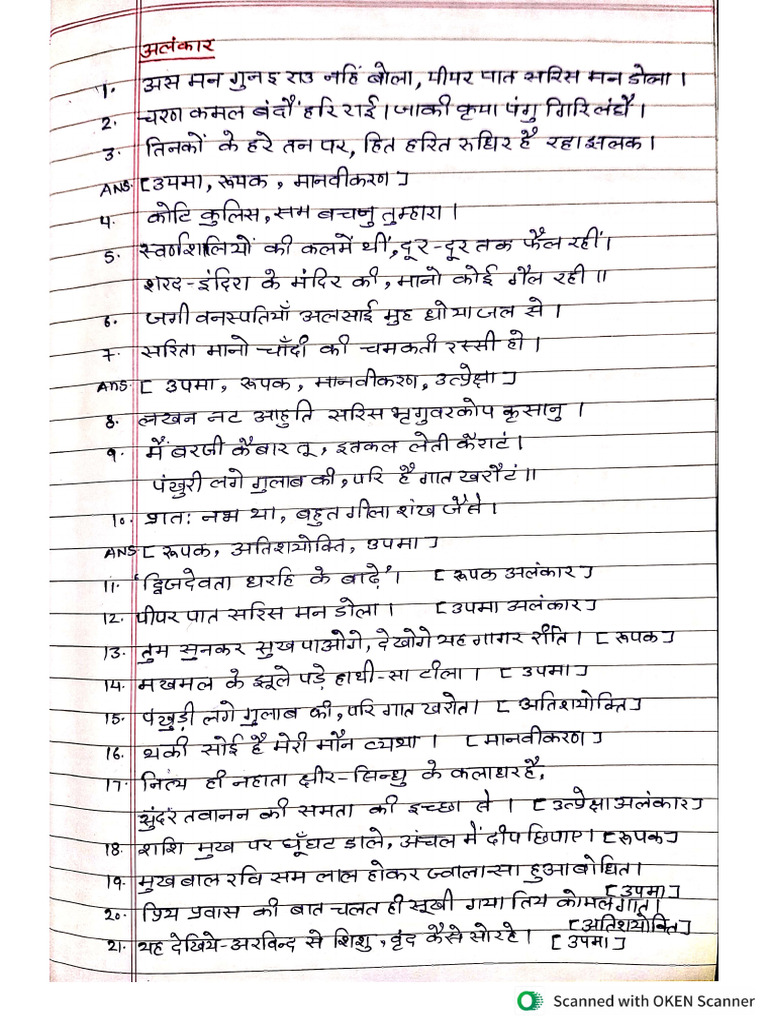 अलंकार
1. अस मन गुनइ राउ नहिं बोला, पीपर पात सरिस मन डोला।
2. चरण कमल बंदौं हरि राई। जाकी कृपा पंगु गिरि लंघै।
3. तिनकों के हरे तन पर, हित हरित रुधिर है रहा झलक।
ANS. [उपमा, रूपक, मानवीकरण]
4. कोटि कुलिस, सम बचनु तुम्हारा।
5. स्वर्णशालियों की कलमें थीं, दूर-दूर तक फैल रहीं।
शरद-इंदिरा के मंदिर की, मानो कोई गैल रही॥
6. जगी वनस्पतियाँ अलसाई मुह धोया जल से।
7. सरिता मानो चाँदी की चमकती रस्सी हो।
ANS. [उपमा, रूपक, मानवीकरण, उत्प्रेक्षा]
8. लखन नट आहुति सरिस भृगुवरकोप कृसानु।
9. मैं बरजी कैबार तू, इतकल लेती कैराटं।
पंखुरी लगे गुलाब की, परि है गात खरौटं॥
10. प्रातः नभ था, बहुत गीला शंख जैसे।
ANS [रूपक, अतिशयोक्ति, उपमा]
11. 'द्विजदेवता धरहि के बाढ़े'। [रूपक अलंकार]
12. पीपर पात सरिस मन डोला। [उपमा अलंकार]
13. तुम सुनकर सुख पाओगे, देखोगे यह गागर रीति। [रूपक]
14. मखमल के झूले पड़े हाथी-सा टीला। [उपमा]
15. पंखुड़ी लगे गुलाब की, परि गात खरोत। [अतिशयोक्ति]
16. थकी सोई है मेरी मौन व्यथा। [मानवीकरण]
17. नित्य ही नहाता क्षीर-सिन्धु के कलाधर है,
सुंदर तवानन की समता की इच्छा से। [उत्प्रेक्षा अलंकार]
18. शशि मुख पर घूँघट डाले, अंचल में दीप छिपाए। [रूपक]
19. मुख बाल रवि सम लाल होकर ज्वाला सा हुआ बोधित।
[उपमा]
20. प्रिय प्रवास की बात चलत ही सूखी गया तिय कोमल गात।
[अतिशयोक्ति]
21. यह देखिये-अरविन्द से शिशु, वृंद कैसे सो रहे। [उपमा]
Scanned with OKEN Scanner